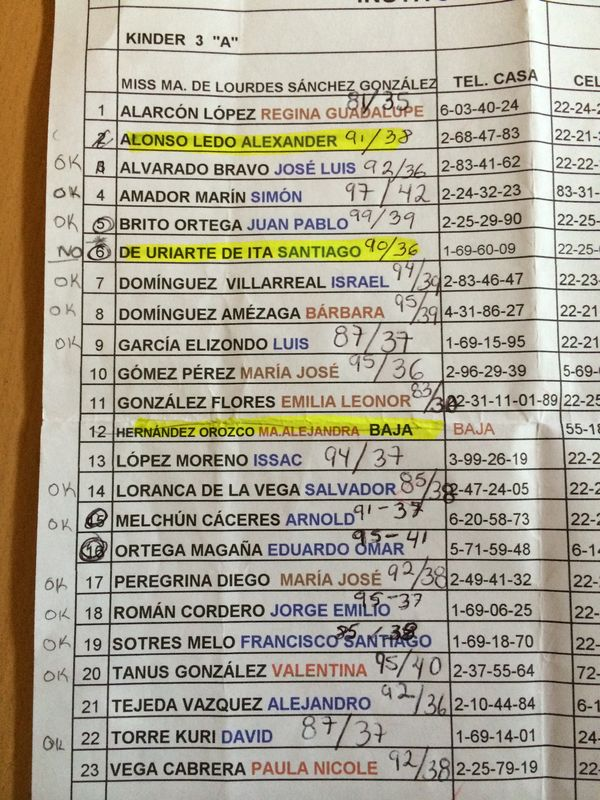 KINDER 3 "A"
MISS MA. DE LOURDES SÁNCHEZ GONZÁLEZ TEL. CASA CEL
1 ALARCÓN LÓPEZ REGINA GUADALUPE 81/35 6-03-40-24 22-24-2
2 ALONSO LEDO ALEXANDER 91/38 2-68-47-83 22-21-
OK 3 ALVARADO BRAVO JOSÉ LUIS 92/36 2-83-41-62 22-22-
OK 4 AMADOR MARÍN SIMÓN 97/42 2-24-32-23 83-31-
OK 5 BRITO ORTEGA JUAN PABLO 99/39 2-25-29-90 22-25-
NO 6 DE URIARTE DE ITA SANTIAGO 90/36 1-69-60-09 22-25-
OK 7 DOMÍNGUEZ VILLARREAL ISRAEL 94/39 2-83-46-47 22-23-
OK 8 DOMÍNGUEZ AMÉZAGA BÁRBARA 95/39 4-31-86-27 22-21
OK 9 GARCÍA ELIZONDO LUIS 87/37 1-69-15-95 22-22
10 GÓMEZ PÉREZ MARÍA JOSÉ 95/36 2-96-29-39 5-69-
11 GONZÁLEZ FLORES EMILIA LEONOR 22-31-11-01-89 22-25
12 HERNÁNDEZ OROZCO MA.ALEJANDRA BAJA BAJA 55-18
13 LÓPEZ MORENO ISSAC 94/37 3-99-26-19 22-2
OK 14 LORANCA DE LA VEGA SALVADOR 85/38 2-47-24-05 22-2
OK 15 MELCHÚN CÁCERES ARNOLD 91-37 6-20-58-73 22-2
16 ORTEGA MAGAÑA EDUARDO OMAR 95-41 5-71-59-48 6-14
OK 17 PEREGRINA DIEGO MARÍA JOSÉ 92/38 2-49-41-32 22-2
OK 18 ROMÁN CORDERO JORGE EMILIO 95-37 1-69-06-25 22-2
OK 19 SOTRES MELO FRANCISCO SANTIAGO 1-69-18-70 22-2
OK 20 TANUS GONZÁLEZ VALENTINA 95/40 2-37-55-64 72-
21 TEJEDA VAZQUEZ ALEJANDRO 92/36 2-10-44-84 6-1
OK 22 TORRE KURI DAVID 87/37 1-69-14-01 24-
23 VEGA CABRERA PAULA NICOLE 92/38 2-25-79-19 22-2